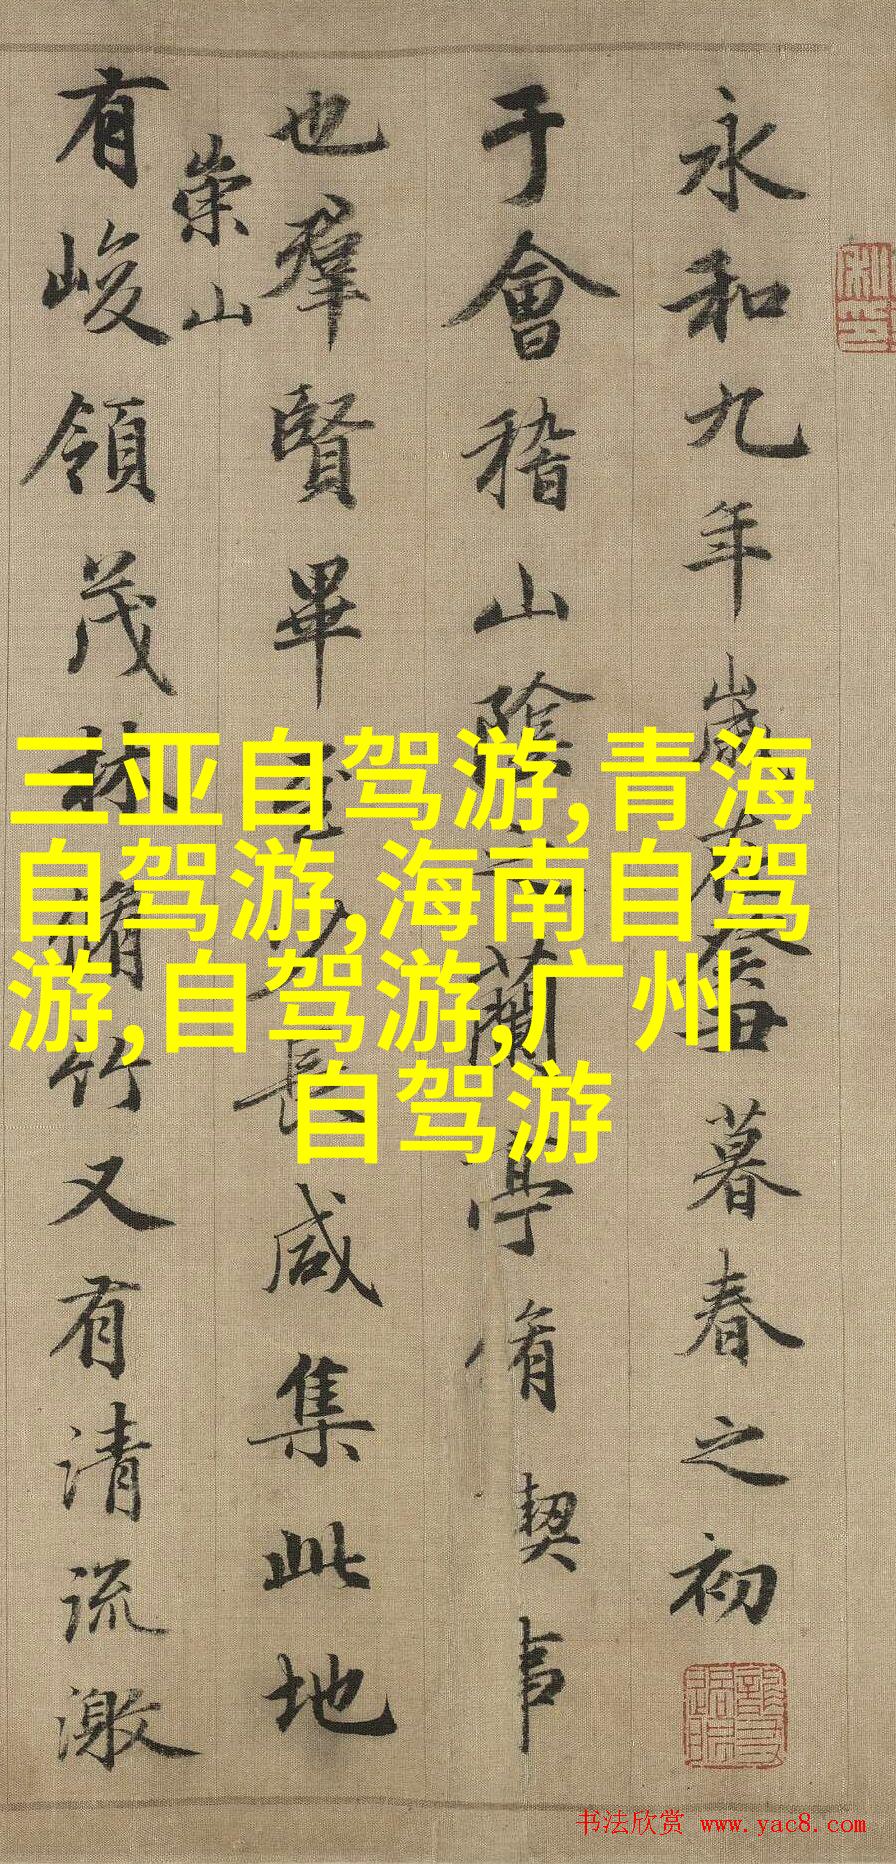 永和九年歲在癸丑暮春之初
于會稽山陰之蘭亭脩禊事
也羣賢畢至少長咸集此地
崇山
有峻領茂林脩竹又有清流激
三亚自驾游,青海
自驾游,海南自驾
游,自驾游,广州
自驾游
书法欣赏 www.yac8.com